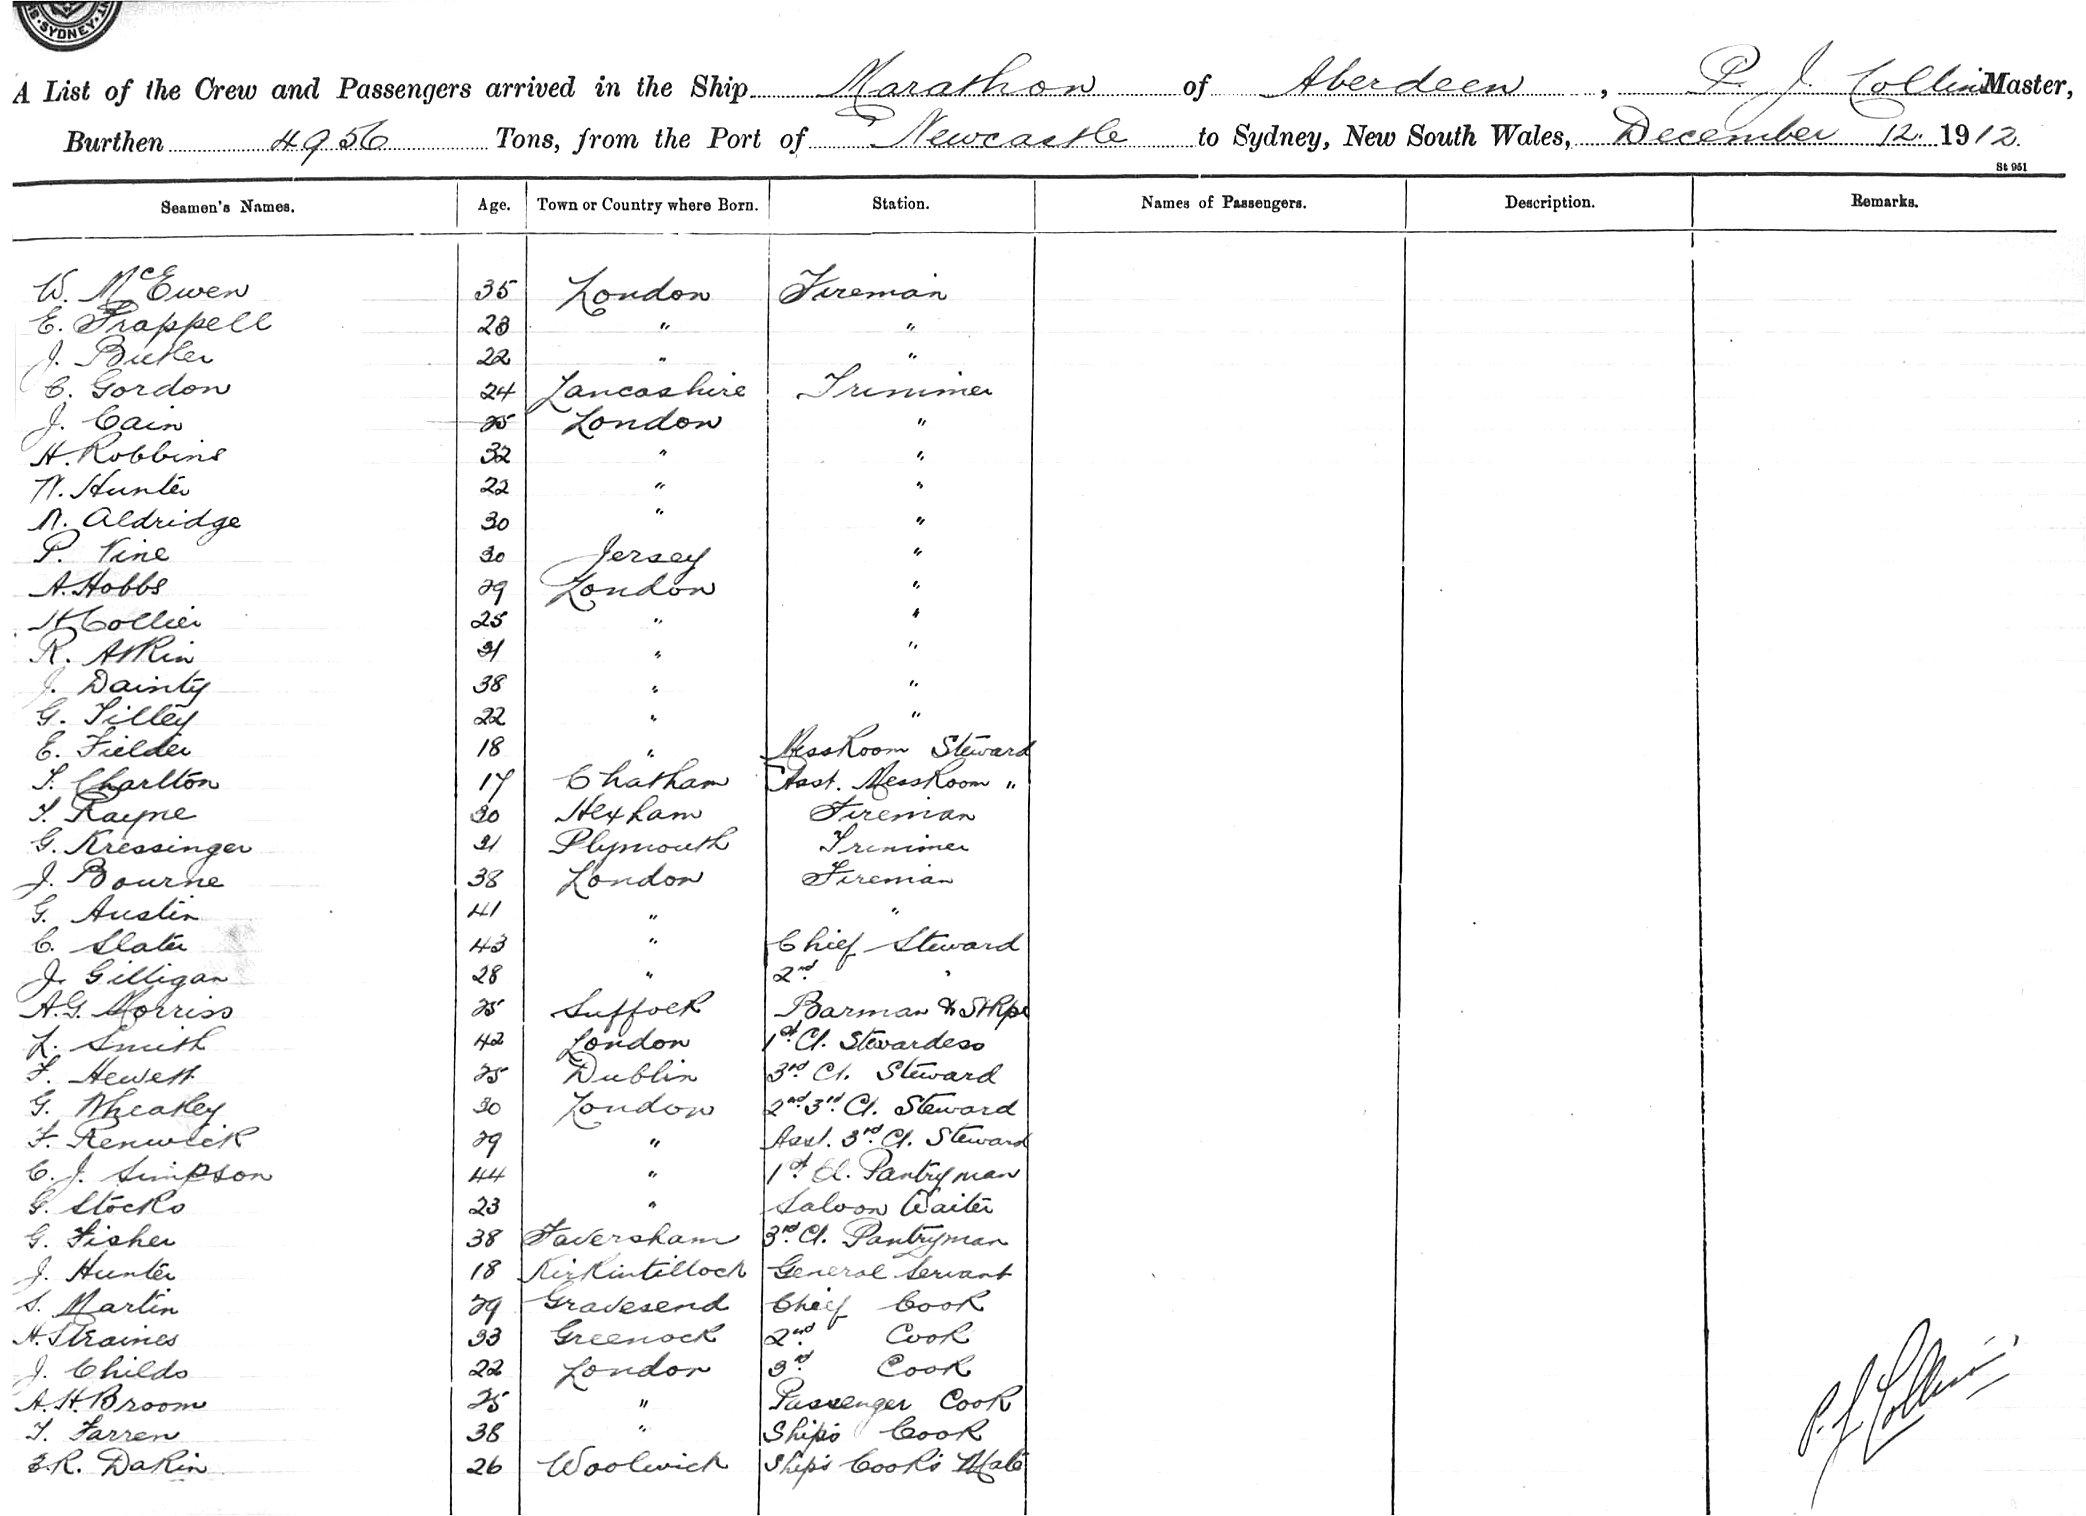 SYDNEY
A List of the Crew and Passengers arrived in the Ship Marathon of Aberdeen, P. J. Collins Master,
Burthen 4956 Tons, from the Port of Newcastle to Sydney, New South Wales, December 12 1912.
St 951
Seamen's Names. Age. Town or Country where Born. Station. Names of Passengers. Description. Remarks.
W. McEwen 35 London Fireman
E. Frappell 23 " "
J. Butler 22 " "
C. Gordon 24 Lancashire Trimmer
J. Cain 25 London "
H. Robbins 32 " "
W. Hunter 22 " "
N. Aldridge 30 " "
P. Vine 30 Jersey "
A. Hobbs 29 London "
H Collier 25 " "
R. Atkin 21 " "
J. Dainty 38 " "
G. Tilley 22 " "
E. Fielder 18 " MessRoom Steward
T. Charlton 17 Chatham Asst. MessRoom "
T. Rayne 30 Hexham Fireman
G. Kressinger 21 Plymouth Trimmer
J. Bourne 38 London Fireman
G. Austin 41 " "
C. Slater 43 " Chief Steward
J. Gilligan 28 " 2nd "
A.G. Morriss 25 Suffock Barman & StKpr
L. Smith 42 London 1st Cl. Stewardess
F. Hewett 25 Dublin 3rd Cl. Steward
G. Wheatley 30 London 2nd 3rd Cl. Steward
F. Renwick 29 " Asst. 3rd Cl. Steward
C. J. Simpson 44 " 1st Cl. Pantryman
G. Stocks 23 " Saloon Waiter
G. Fisher 38 Faversham 3rd Cl. Pantryman
J. Hunter 18 Kirkintilloch General Servant
S. Martin 29 Gravesend Chief Cook
H. Straines 33 Greenock 2nd Cook
J. Childs 22 London 3rd Cook
A. H. Broom 25 " Passenger Cook
T. Farren 38 " Ship's Cook
R. Dakin 26 Woolwich Ship's Cook's Mate
P. J. Collins